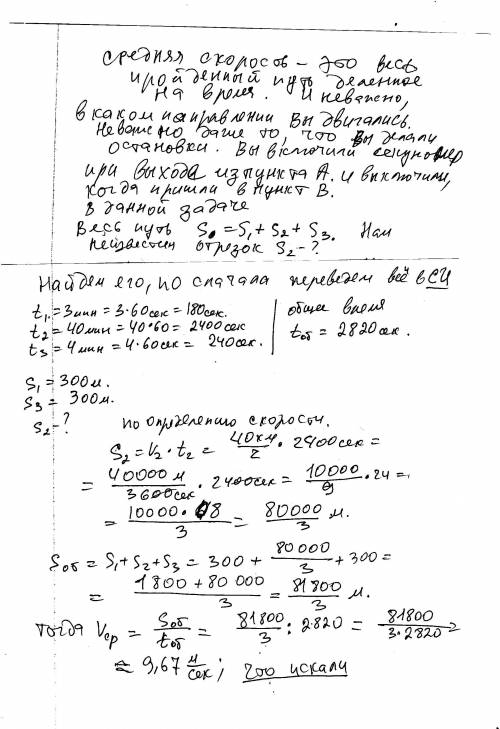 средняя скорость – это весь
пройденный путь деленное
на время. И неважно,
в каком направлении Вы двигались.
Неважно даже то, что Вы делали
остановки. Вы включили секундомер
при выхода из пункта А. и выключили,
когда пришли в пункт В.
В данной задаче
Весь путь S₀ = S₁ + S₂ + S₃. Нам
неизвестен отрезок S₂ – ?
Найдем его, но сначала переведем всё в СИ
t₁ = 3 мин = 3·60 сек = 180 сек. общее время
t₂ = 40 мин = 40·60 = 2400 сек tоб = 2820 сек.
t₃ = 4 мин = 4·60 сек = 240 сек.
S₁ = 300 м.
S₃ = 300 м.
S₂ – ? по определению скорости.
S₂ = V₂·t₂ = 40км/ч · 2400 сек =
= 40000 м/3600 сек · 2400 сек = 10000/9 · 24 =
= 10000·8/3 = 80000/3 м.
Sоб = S₁ + S₂ + S₃ = 300 + 80 000/3 + 300 =
= 1800 + 80 000/3 = 81 800/3 м.
тогда Vср = Sоб/tоб = 81800/3 : 2820 = 81800/3·2820 =
≈ 9,67 м/сек; что искали